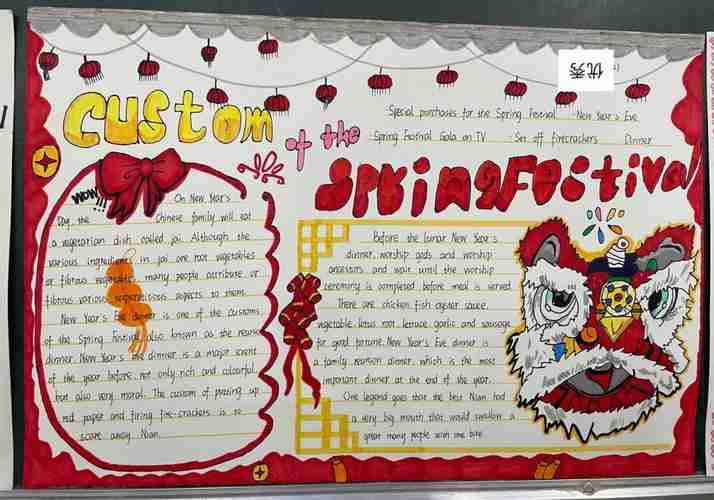 优秀
Custom
of the
SpringFestival
Special purchases for the Spring Festival New Year's Eve
Spring Festival Gala on TV Set off firecrackers Dinner
Wow!!!
On New Year's
Day, the Chinese family will eat
a vegetarian dish called jai. Although the
various ingredients in jai are root vegetables
or fibrous vegetables, many people attribute or
fibrous various superstitious aspects to them.
New Year's Eve dinner is one of the customs
of the Spring Festival, also known as the
dinner. New Year's Eve dinner is a major event
of the year before, not only rich and colorful,
but also very moral. The custom of putting up
red paper and firing fire-crackers is to
scare away Nian.
Before the lunar New Year's
dinner, worship gods and worship
ancestors and wait until the worship
ceremony is completed before meal is served
There are chicken, fish, oyster sauce,
vegetable, lotus root, lettuce, garlic and sausage
for good fortune. New Year's Eve dinner is
a family reunion dinner, which is the most
important dinner at the end of the year.
One legend goes that the beast Nian had
a very big mouth that would swallow a
great many people with one bite